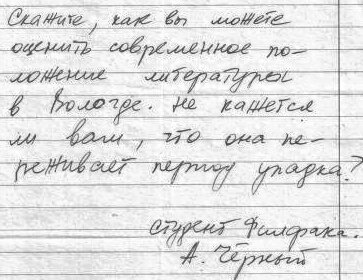 Скажите, как вы можете
оценить современное по-
ложение литературы
в Вологде. Не кажется
ли вам, что она пе-
реживает период упадка?
студент Филфака.
А. Чёрный